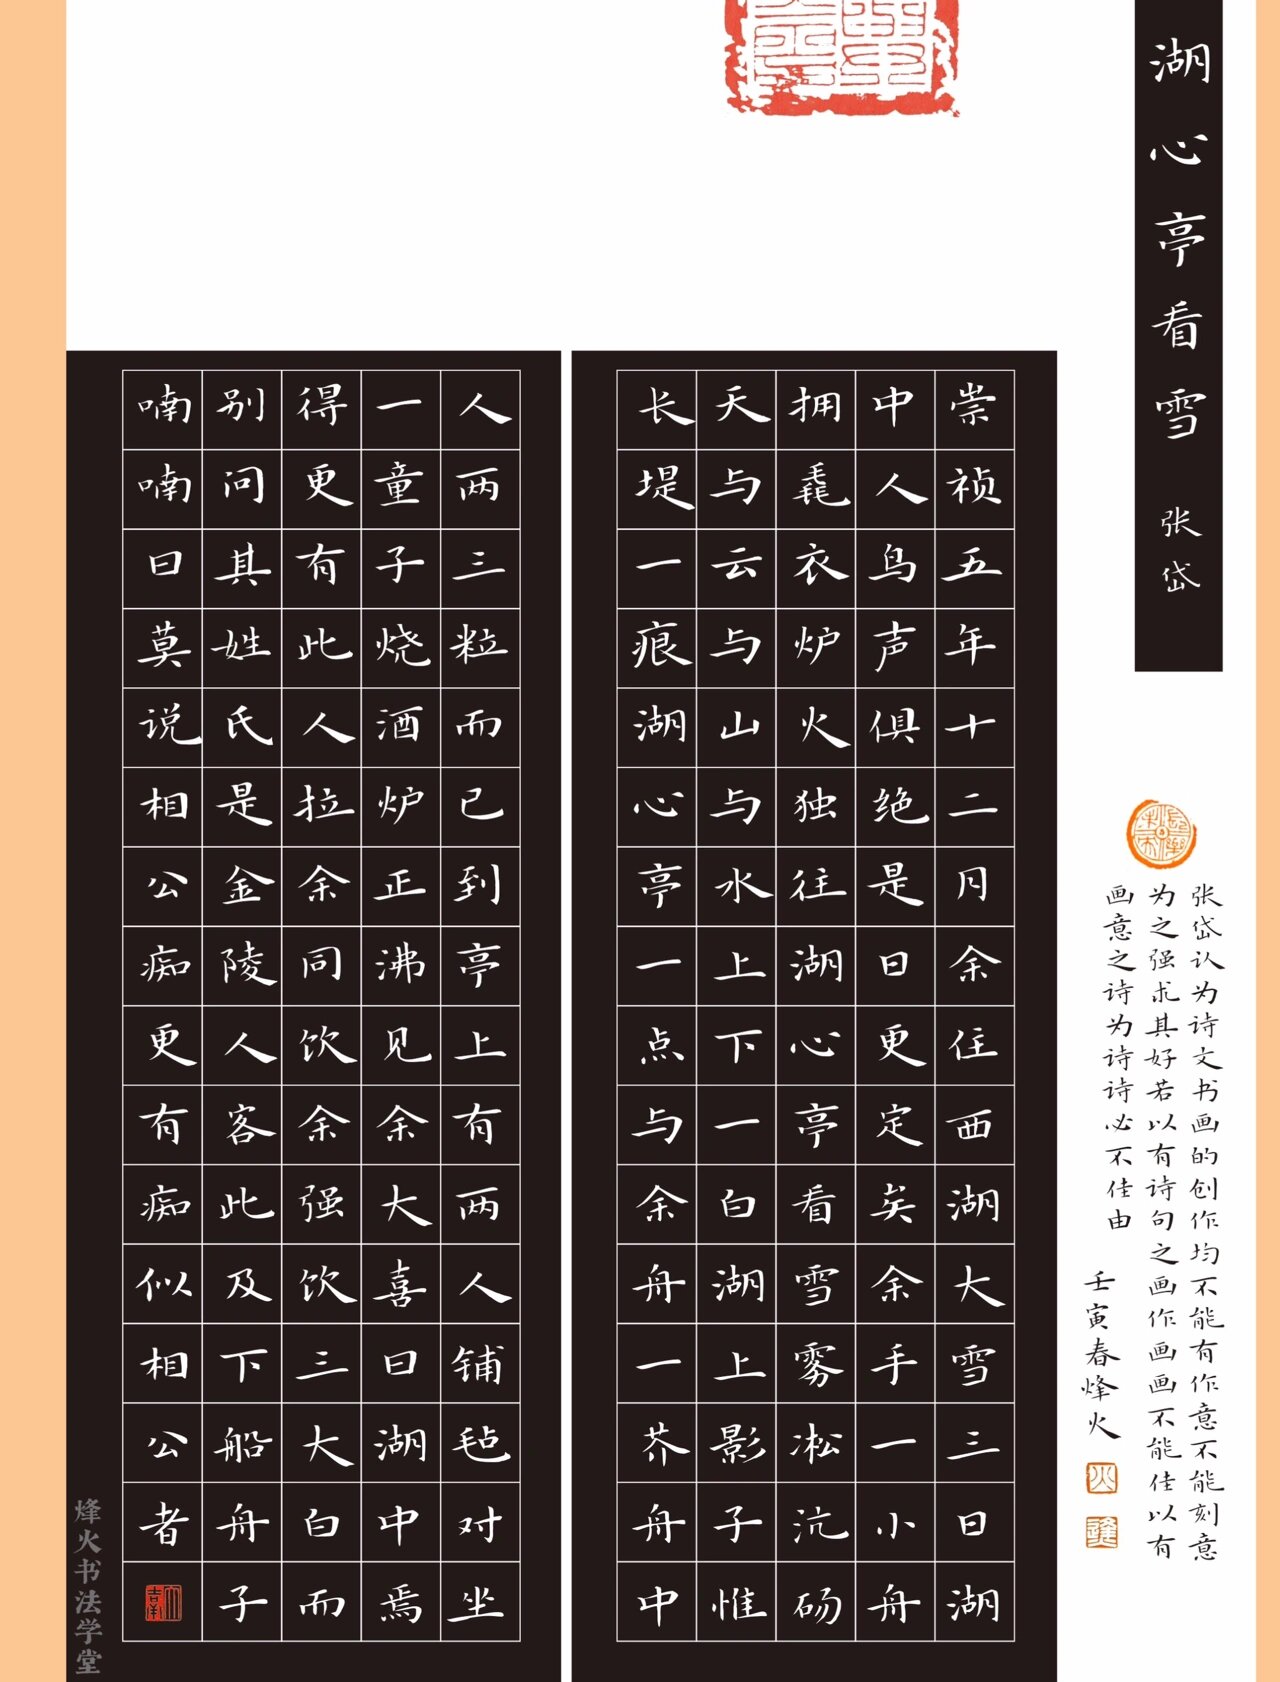 湖心亭看雪 张岱
崇祯五年十二月余住西湖大雪三日湖
中人鸟声俱绝是日更定矣余手一小舟
拥毳衣炉火独往湖心亭看雪雾凇沆砀
天与云与山与水上下一白湖上影子惟
长堤一痕湖心亭一点与余舟一芥舟中
人两三粒而已到亭上有两人铺毡对坐
一童子烧酒炉正沸见余大喜曰湖中焉
得更有此人拉余同饮余强饮三大白而
别问其姓氏是金陵人客此及下船舟子
喃喃曰莫说相公痴更有痴似相公者
张岱认为诗文书画的创作均不能有作意不能刻意
为之强求其好若以有诗句之画作画画不能佳以有
画意之诗为诗诗必不佳由
壬寅春烽火
烽火书法学堂